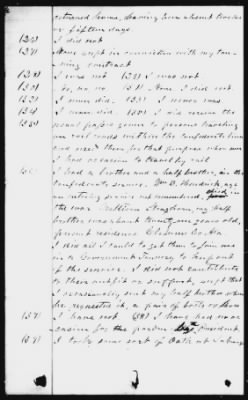 returned home, having been absent twelve
or fifteen days.
I did not
None except in connection with my tan-
ning contract
I was not I was not
No, no, no None. I did not.
I never did. I never was
I never did. I did receive the
usual passes given to persons traveling
on rail roads within the Confederate lines
and used them for that purpose when ever
I had occasion to travel by rail
I had a brother and a half brother, in the
Confederate service. Wm D. Kendrick, age
on entering service not remembered, died in
the war. William Stringham, my half
brother was about twenty one years old,
present residence Cleburne Co Ala.
I did all I could to get them to join me
in a Government Tannery to keep out
of the service. I did not contribute
to their outfit or support, except that
I occasionally sent my half brother when
he requested it, a pair of boots or shoes
I have not I have had no oc-
casion for the pardon President
I took some sort of Oath at